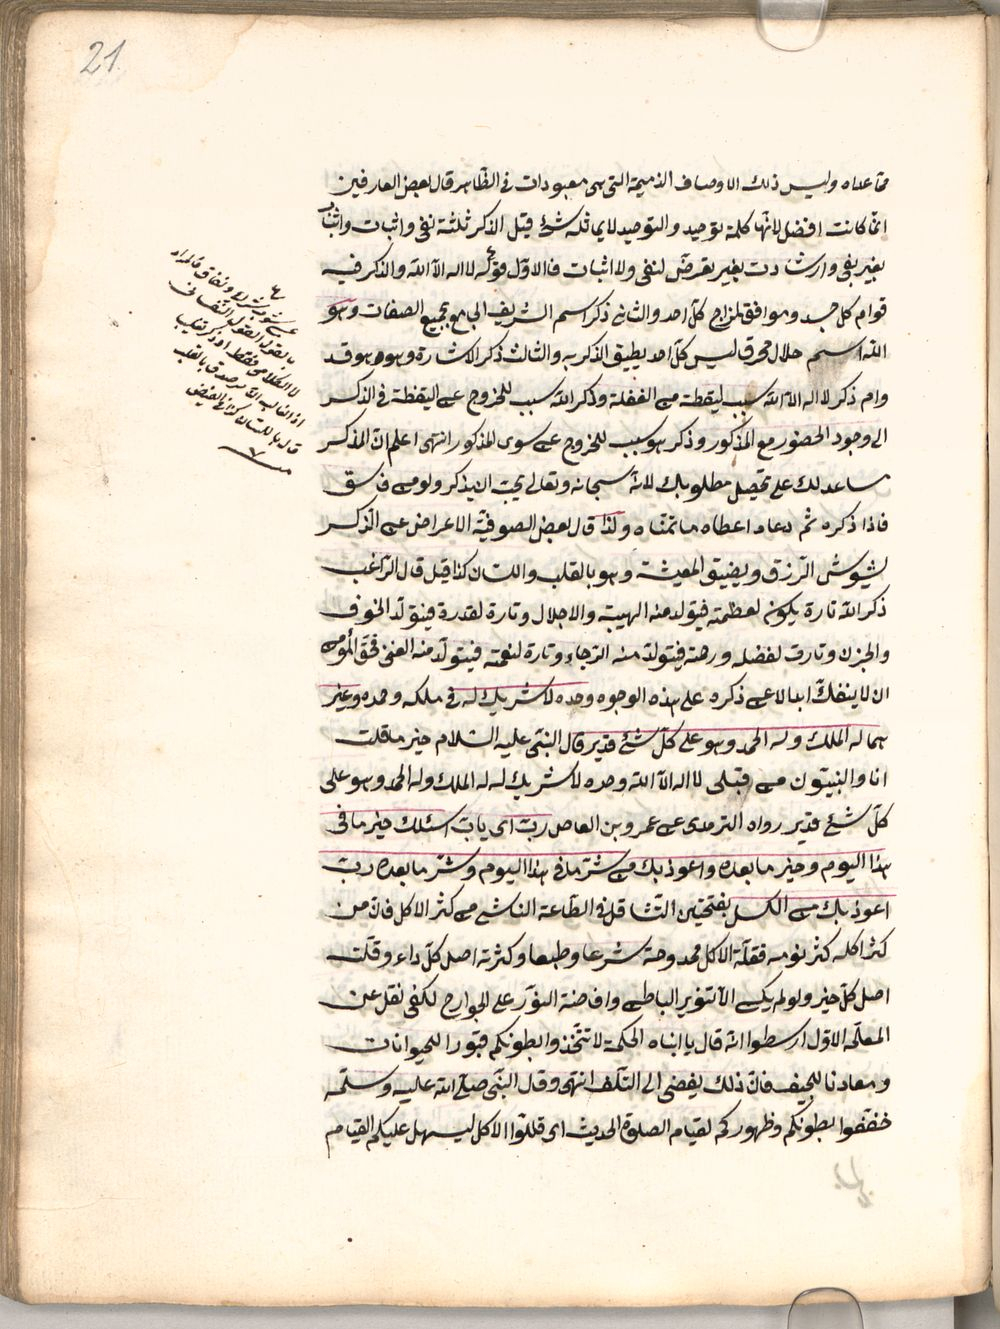 21
مما عداه وليس ذلك الا وصاف الذميمة التى هى معبودات فى الظاهر قال بعض العارفين
انما كانت افضل لانها كلمة توحيد والتوحيد لا يماثله شئ قيل الذكر ثلثة نفى واثبات واثبات
بغير نفى واشارت بغير تعرض لنفى ولا اثبات فالاول قوله لا اله الا الله والذكر فيه
قوام كل جسد وموافق لمزاج كل احد والثانى ذكر اسم الشريف الجامع بجميع الصفات وهو
الله اسم جلال محرق ليس كل احد يطيق الذكر به والثالث ذكر الاشارة وهو هو وقد
وام ذكر لا اله الا الله سبب ليقظة من الغفلة وذكر الله سبب للخروج عن اليقظة فى الذكر
الى وجود الحضور مع المذكور وذكر هو سبب للخروج عن سوى المذكور انتهى اعلم ان الذكر
مساعد لك على تحصيل مطلوبك لانه سبحانه وتعالى يحب ان يذكر ولو من فاسق
فاذا ذكره ثم دعاه اعطاه ما تمناه ولذا قال بعض الصوفية الاعراض عن الذكر
يشوش الرزق ويضيق المعيشة وهو بالقلب واللسان كذا قيل قال الراغب
ذكر الله تارة يكون لعظمته فيتولد منه الهيبة والاجلال وتارة لقدرة فيتولد الخوف
والحزن وتارة لفضله ورحمته فيتولد منه الرجاء وتارة لنعمته فيتولد منه الغنى فحق المؤمن
ان لا ينفك ابدا لا عن ذكره على هذه الوجوه وحده لا شريك له فى ملكه وحمده وغير
هما له الملك وله الحمد وهو على كل شئ قدير قال النبى عليه السلام خير ما قلت
انا والنبيون من قبلى لا اله الا الله وحده لا شريك له له الملك وله الحمد وهو على
كل شئ قدير رواه الترمذى عن عمرو بن العاص رب اى يا رب اسئلك خير ما فى
هذا اليوم وخير ما بعده واعوذ بك من شر ما فى هذا اليوم وشر ما بعده رب
اعوذ بك من الكسل بفتحتين التثاقل فى الطاعة الناشئ من كثر الاكل فان من
كثر اكله كثر نومه فقلة الاكل ممدوحة شرعا وطبعا وكثرته اصل كل داء وقلت
اصل كل خير ولو لم يكن الا لتنوير الباطن وافاضة النور على الجوارح لكفى نقل عن
المعلم الاول ارسطوا انه قال يا ابناه الحكمة لا تتخذوا بطونكم قبورا للحيوانات
ومعادنا للجيف فان ذلك يفضى الى التلف انتهى وقال النبى صلى الله عليه وسلم
خففوا بطونكم وظهوركم لقيام الصلوة الحديث اى قللوا الاكل ليسهل عليكم القيام